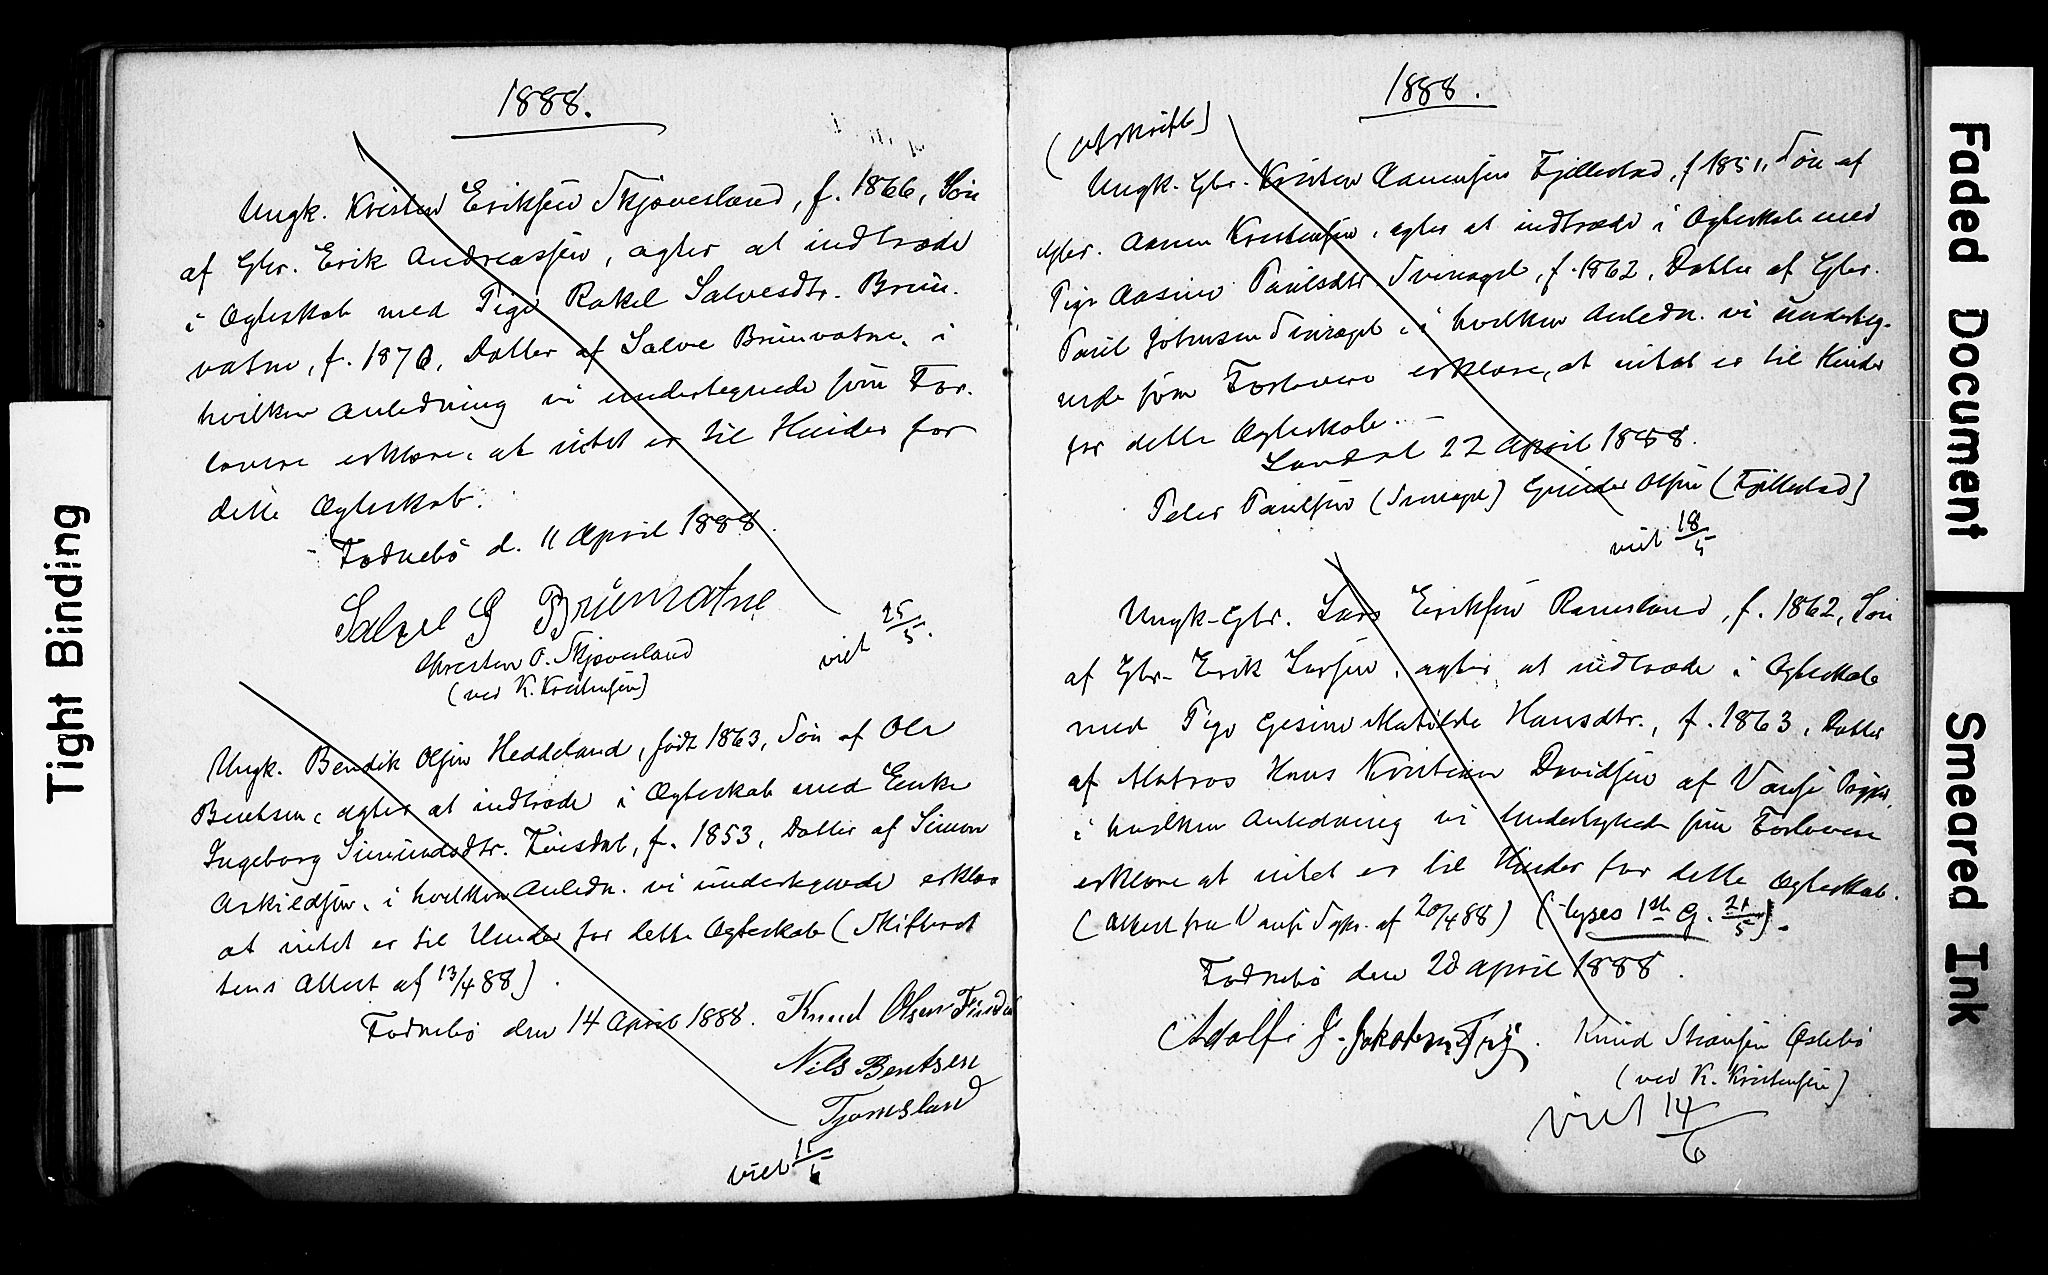 Tight Binding
1888.
Ungk. Kristen Eriksen Skjævesland, f. 1866, Søn
af Gbr. Erik Andreassen, agter at indtræde
i Ægteskab med Pige Rakel Salvesdtr. Brun-
vatne, f. 1870, Datter af Salve Brunvatne, i
hvilken Anledning vi undertegnede som For-
lovere erklære, at intet er til Hinder for
dette Ægteskab.
Fodnebö d. 11 April 1888.
Salve G Brunvatne
Christen O. Skjævesland
(ved K. Kristensen)
viet 25/5.
Ungk. Bendik Olsen Heddeland, født 1863, Søn af Ole
Bentsen, agter at indtræde i Ægteskab med Enke
Ingeborg Simundsdtr. Finsdal, f. 1853, Datter af Simon
Askildsen, i hvilken Anledn. vi undertegnede erklære
at intet er til Hinder for dette Ægteskab (Skifteret
tens Attest af 13/4 88)
Fodnebö den 14 April 1888. Knud Olsen
Nils Bentsen
Tjomsland
viet 15/6
1888.
(Afskrift)
Ungk. Gbr. Kristen Aanensen Fjellestad, f 1851, Søn af
Gbr. Aanen Kristensen, agter at indtræde i Ægteskab med
Pige Aasine Paulsdtr. Svinagel, f. 1862, Datter af Gbr.
Paul Johnsen Svinagel, i hvilken Anledn. vi underteg-
nede som Forlovere erklære, at intet er til Hinder
for dette Ægteskab. —
Landal 22 April 1888.
Peter Paulsen (Svinagel) Gunder Olsen (Fjellestad)
viet 18/5
Ungk-Gbr. Lars Eriksen Ramsland, f. 1862, Søn
af Gbr- Erik Larsen, agter at indtræde i Ægteskab
med Pige Gesine Matilde Hansdtr., f. 1863, Datter
af Matros Hans Kristian Davidsen af Vanse
i hvilken Anledning vi undertegnede som Forlovere
erklære at intet er til Hinder for dette Ægteskab.
(Attest fra Vanse Sgks. af 20/4 88) (lyses 1ste G. 21/5).
Fodnebö den 28 April 1888.
Adolf J. Jakobsen. Knud Olsebö
(ved K. Kristensen)
viet 14/6
Faded Document
Smeared Ink